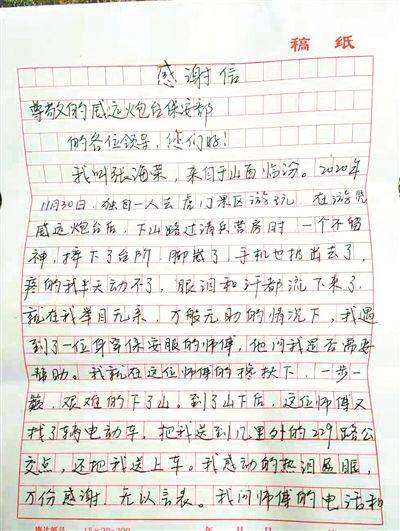 稿 纸
感谢信
尊敬的威远炮台保安部
的各位领导,您们好!
我叫张海菜,来自于山西临汾。2020年
11月30日,独自一人去虎门景区游玩 在游览
威远炮台后,下山路过清兵营房时 一个不留
神,摔下了台阶 脚崴了,手机也扔出去了,
疼的我半天动不了,眼泪和汗都流下来了,
就在我举目无亲,万般无助的情况下,我遇
到了一位身穿保安服的师傅,他问我是否需要
帮助。我就在这位师傅的搀扶下,一步一
艰难的下了山。到了山下后,这位师傅又
找了辆电动车,把我送到几里外的229路公
交点,还把我送上车。我感动的热泪盈眶,
万份感谢 无以言表。我问师傅的电话和
15×20=300 年 月 日